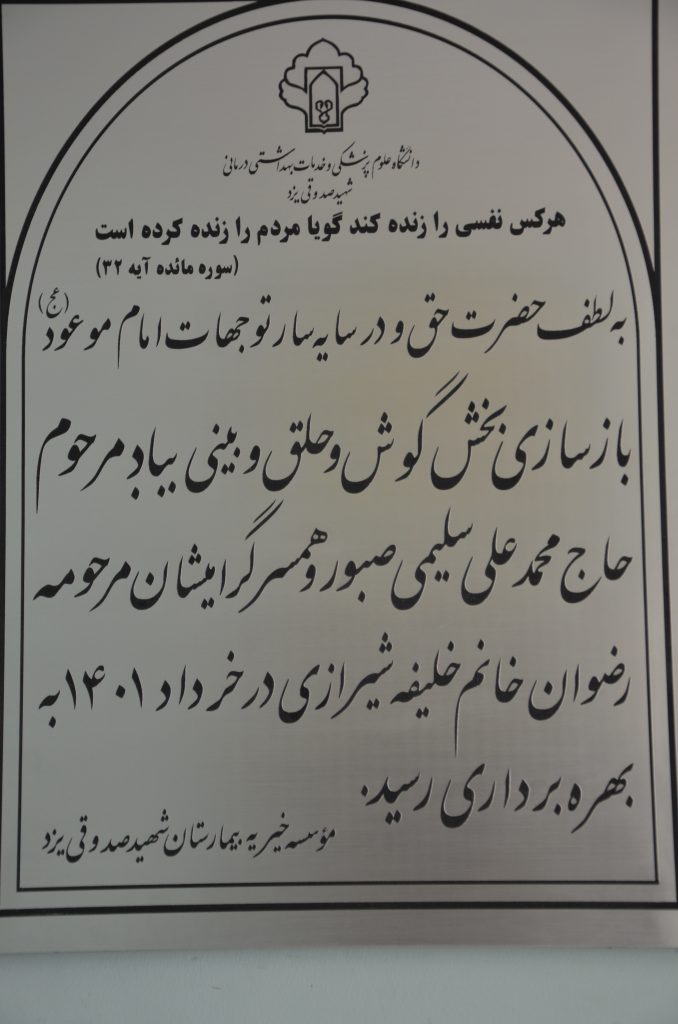 دانشگاه علوم پزشکی و خدمات بهداشتی درمانی
شهید صدوقی یزد
هرکس نفسی را زنده کند گویا مردم را زنده کرده است
(سوره مائده آیه ۳۲)
به لطف حضرت حق و در سایه سار توجهات امام موعود (عج)
بازسازی بخش گوش و حلق و بینی بیاد مرحوم
حاج محمد علی سلیمی صبور و همسر گرامیشان مرحومه
رضوان خانم خلیفه شیرازی در خرداد ۱۴۰۱ به
بهره برداری رسید.
مؤسسه خیریه بیمارستان شهید صدوقی یزد